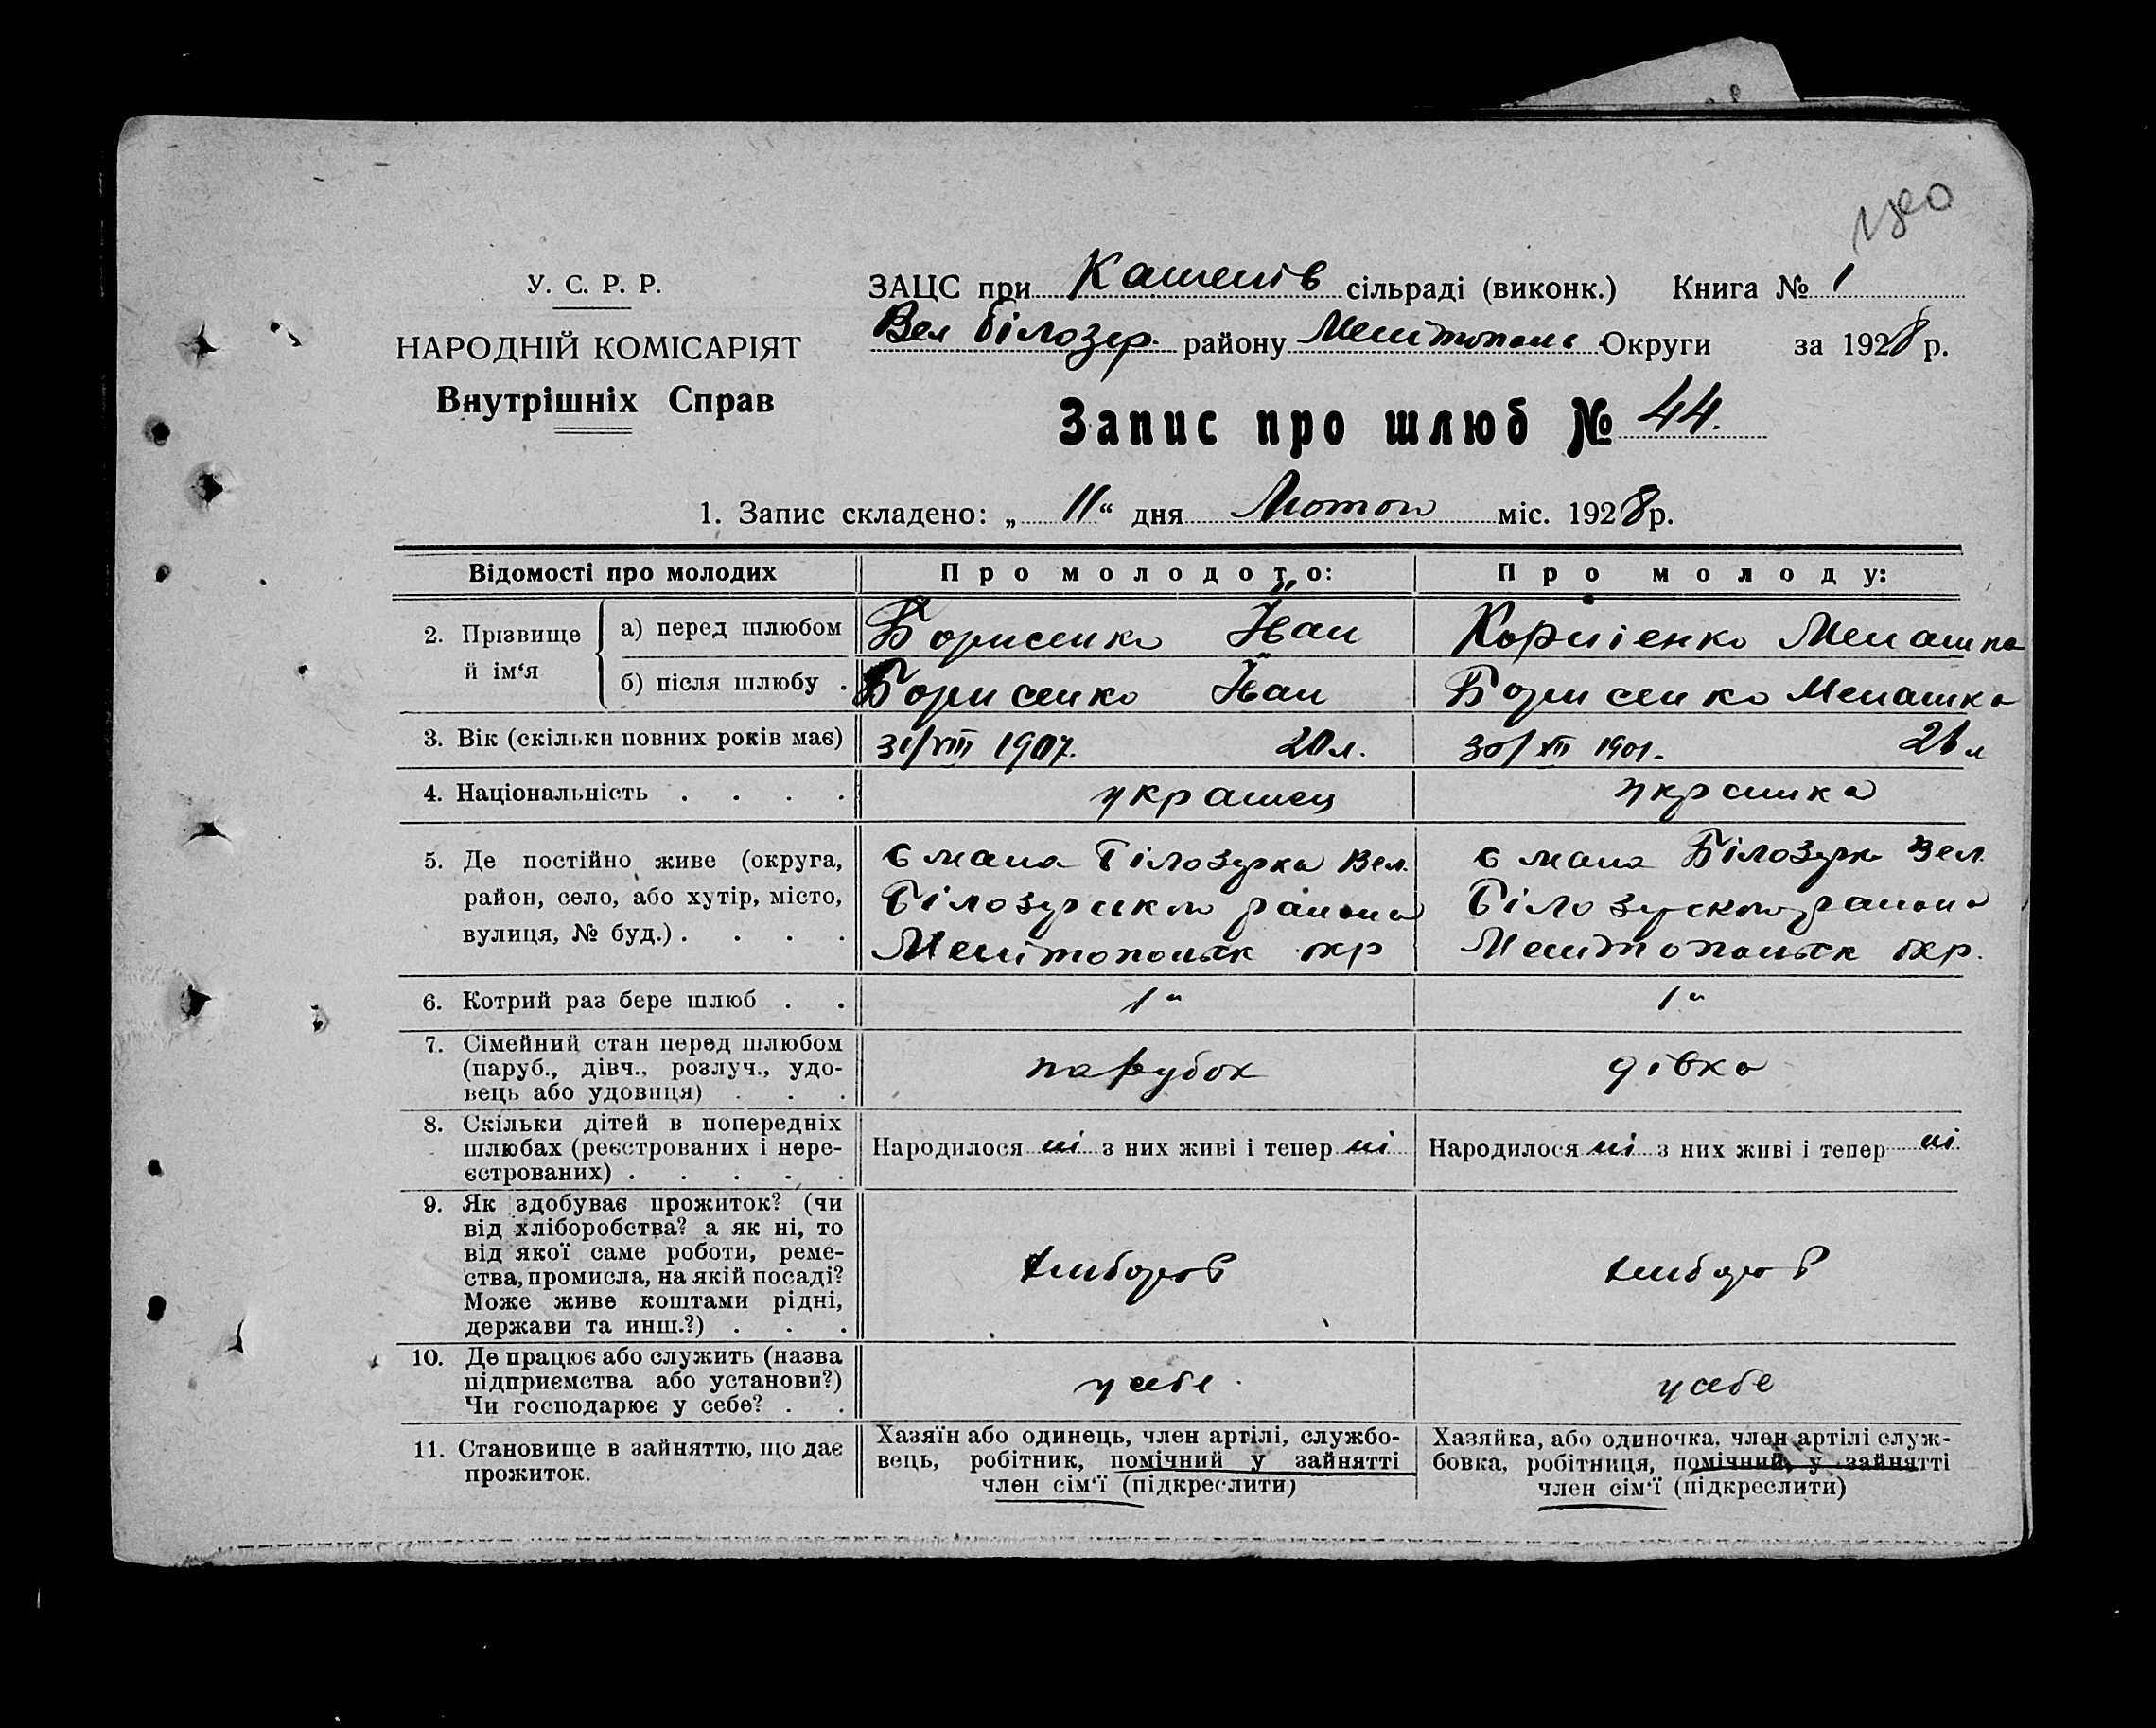 180
У. С. Р. Р.
НАРОДНІЙ КОМІСАРІЯТ
Внутрішніх Справ
ЗАЦС при Качкив сільраді (виконк.) Книга № 1
Вел білозер. району Мелітополь Округи за 1928 р.
Запис про шлюб № 44.
1. Запис складено: „ 11 “ дня Лютого міс. 1928 р.
Відомості про молодих
Про молодого:
Про молоду:
2. Прізвище й ім‘я
а) перед шлюбом
Борисенко Йван
Корнієнко Мелашка
б) після шлюбу .
Борисенко Йван
Борисенко Мелашка
3. Вік (скільки повних років має)
31/VIII 1907. 20 л.
30/XII 1901. 26 л
4. Національність . . . .
українец
українка
5. Де постійно живе (округа,
район, село, або хутір, місто,
вулиця, № буд.) . . . .
с мала Білозерка Вел.
Білозерського района
Мелітопольск окр
с мала Білозерка Вел.
Білозерского района
Мелітопольск окр.
6. Котрий раз бере шлюб . .
1"
1"
7. Сімейний стан перед шлюбом
(паруб., дівч., розлуч., удо-
вець або удовиця) . . .
парубок
дівка
8. Скільки дітей в попередніх
шлюбах (реєстрованих і нере-
єстрованих) . . . . .
Народилося ні з них живі і тепер ні
Народилося ні з них живі і тепер ні
9. Як здобуває прожиток? (чи
від хліборобства? а як ні, то
від якої саме роботи, реме-
ства, промисла, на якій посаді?
Може живе коштами рідні,
держави та инш.?) . . .
хлибороб
хлибороб
10. Де працює або служить (назва
підприємства або установи?)
Чи господарює у себе? . .
у себе
у себе
11. Становище в зайняттю, що дає
прожиток.
Хазяїн або одинець, член артілі, службо-
вець, робітник, помічний у зайнятті
член сім‘ї (підкреслити)
Хазяйка, або одиночка, член артілі служ-
бовка, робітниця, помічний у зайнятті
член сім‘ї (підкреслити)